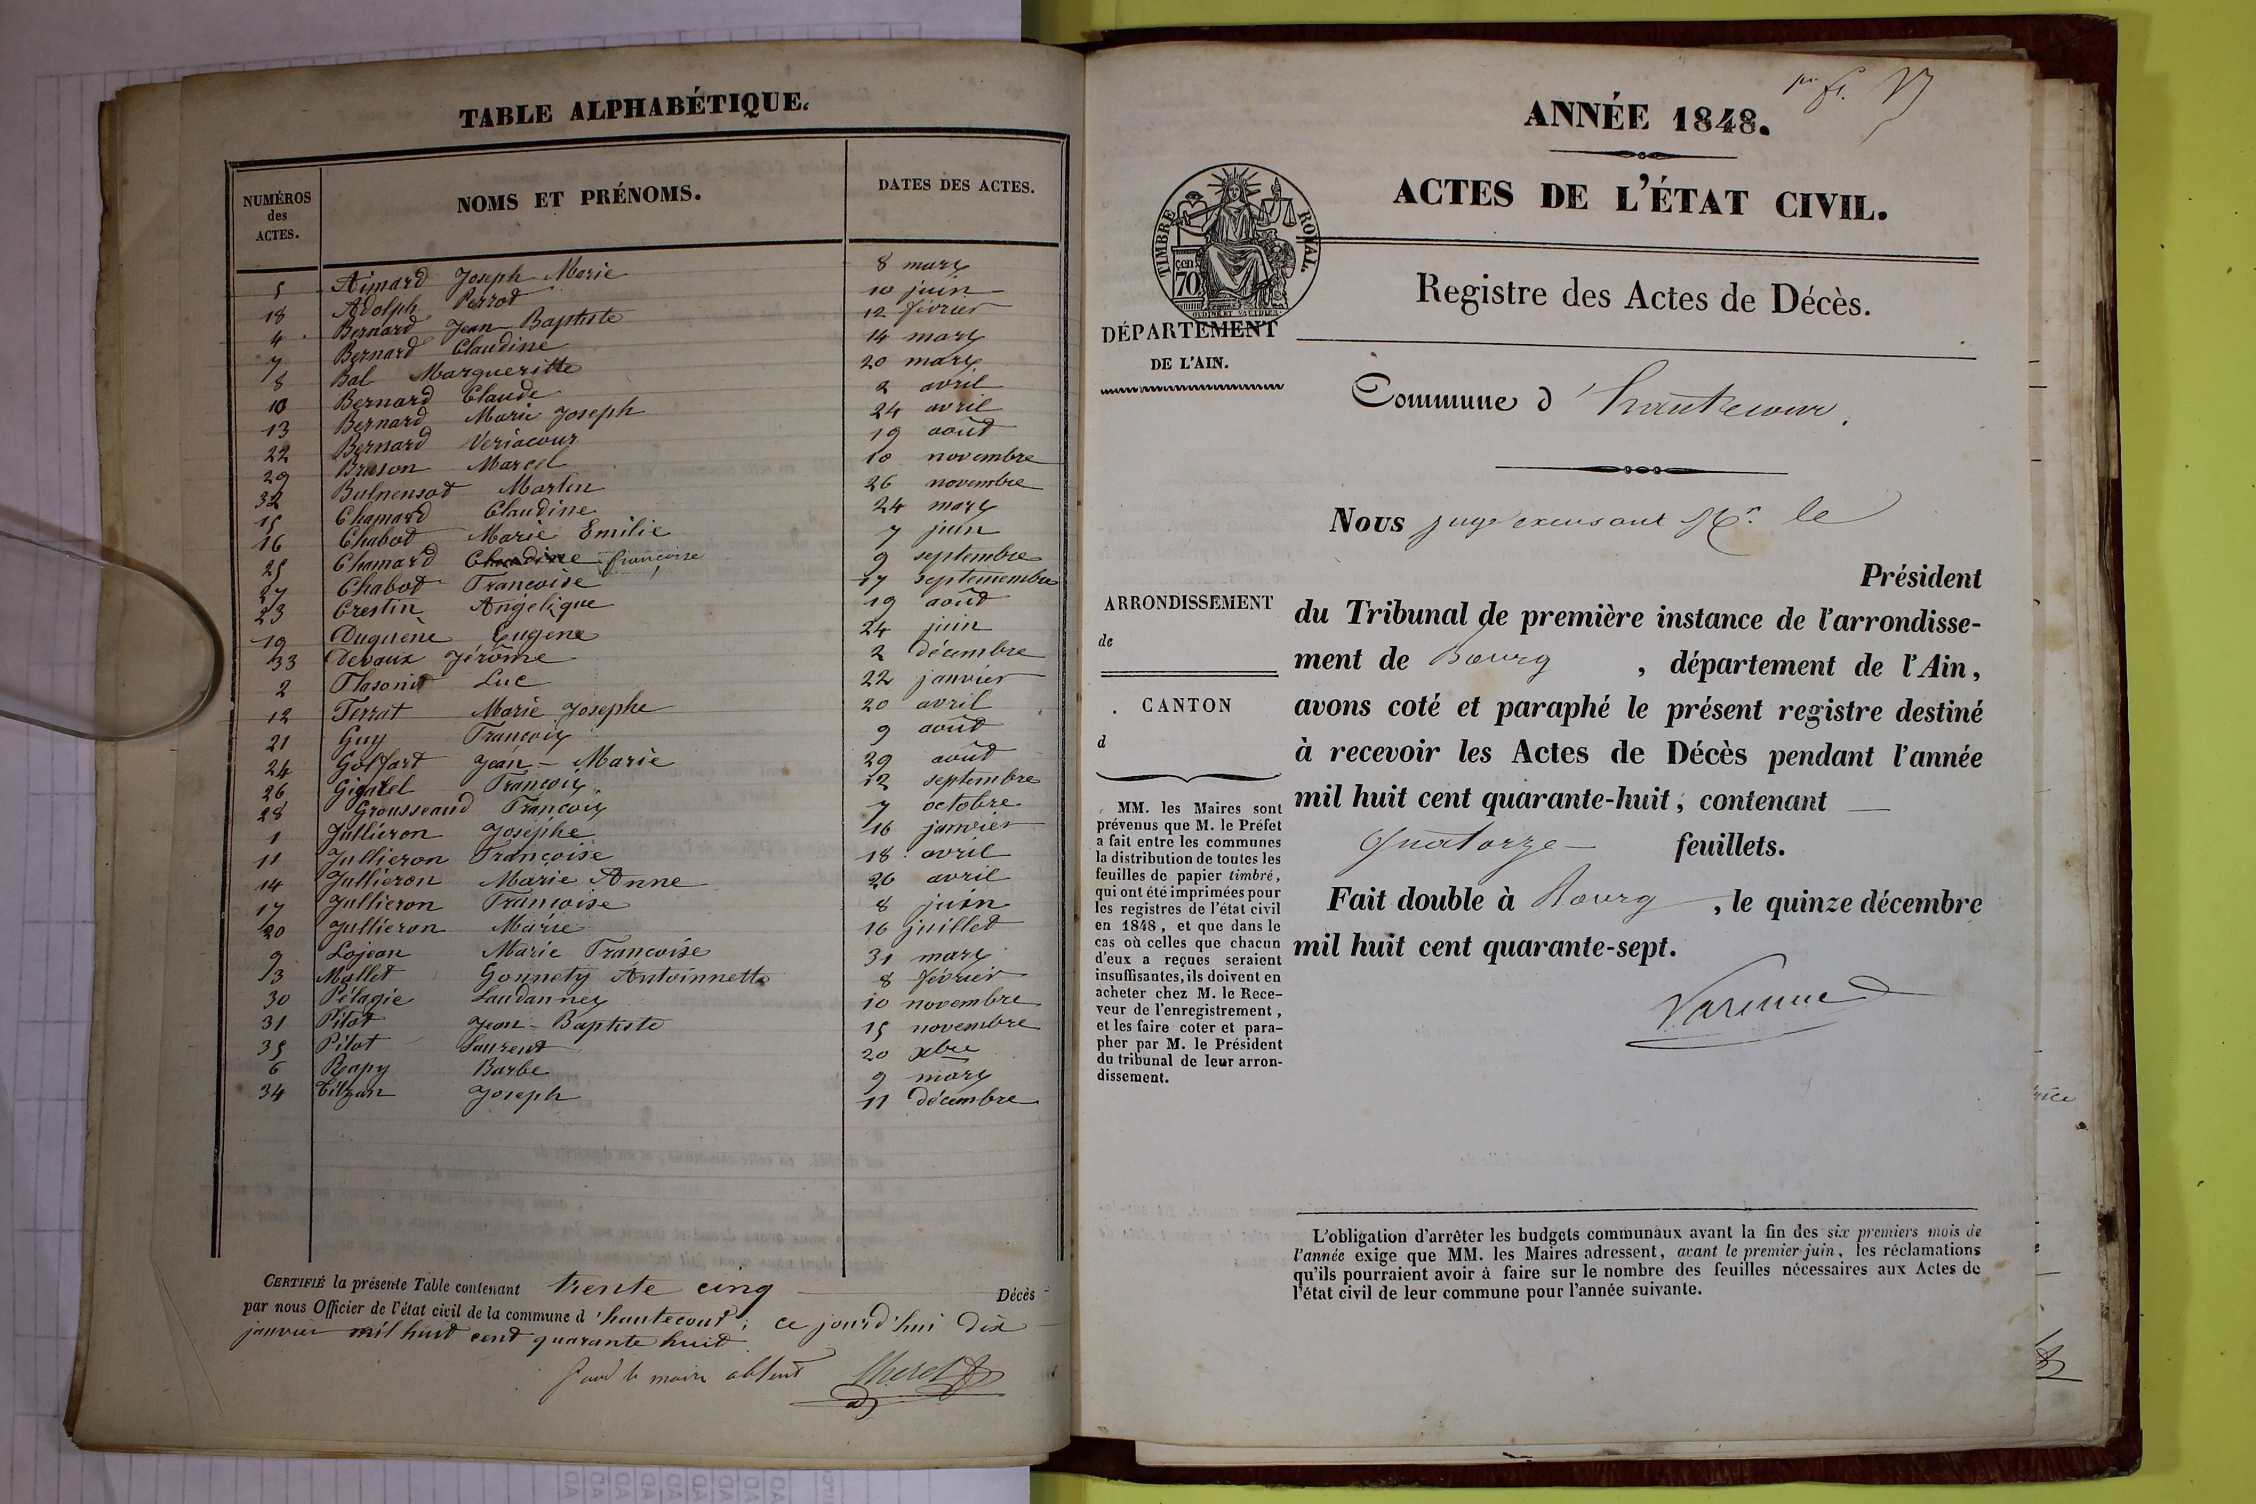 TABLE ALPHABÉTIQUE.
NUMÉROS des ACTES. NOMS ET PRÉNOMS. DATES DES ACTES.
5 Aimard Joseph Marie 8 mars
18 Adolph Perrot 10 juin
4 Bernard Jean Baptiste 12 février
7 Bernard Claudine 14 mars
8 Bal Margueritte 20 mars
10 Bernard Claude 2 avril
13 Bernard Marie Joseph 24 avril
22 Bernard 19 août
29 Brison Marcel 10 novembre
32 Martin 26 novembre
15 Chamard Claudine 24 mars
16 Chabot Marie Emilie 7 juin
25 Chamard françoise 9 septembre
27 Chabot Françoise 17 septemembre
23 Crestin Angélique 19 août
19 Duquène Eugène 24 juin
33 Devaux Jérôme 2 décembre
2 Luc 22 janvier
12 Ferrat Marie Josephe 20 avril
21 Guy François 9 août
24 Goiffart Jean-Marie 29 août
26 François 12 septembre
28 Grousseaud François 7 octobre
1 Jullieron Josephe 16 janvier
11 Jullieron Françoise 18 avril
14 Jullieron Marie Anne 26 avril
17 Jullieron Françoise 8 juin
20 Jullieron Marie 16 juillet
9 Lojean Marie Françoise 31 mars
3 Mallet Gonnety Antoinnette 8 février
30 Pélagie 10 novembre
31 Pitot Jean-Baptiste 15 novembre
35 Pitot Laurent 20 xbre
6 Rapy Barbe 9 mars
34 Joseph 11 décembre
CERTIFIÉ la présente Table contenant trente cinq Décès
par nous Officier de l'état civil de la commune d'hautecour, ce jourd'hui dix
janvier mil huit cent quarante huit
Pour le maire absent
ANNÉE 1848.
ACTES DE L'ÉTAT CIVIL.
TIMBRE ROYAL.
70
Registre des Actes de Décès.
DÉPARTEMENT
DE L'AIN.
Commune d'hautecour.
Nous juge exerçant Mr. le
Président
du Tribunal de première instance de l'arrondisse-
ment de Bourg, département de l'Ain,
avons coté et paraphé le présent registre destiné
à recevoir les Actes de Décès pendant l'année
mil huit cent quarante-huit, contenant
Quatorze feuillets.
Fait double à Bourg, le quinze décembre
mil huit cent quarante-sept.
Varenne
ARRONDISSEMENT
de
CANTON
d
MM. les Maires sont
prévenus que M. le Préfet
a fait entre les communes
la distribution de toutes les
feuilles de papier timbré,
qui ont été imprimées pour
les registres de l'état civil
en 1848, et que dans le
cas où celles que chacun
d'eux a reçues seraient
insuffisantes, ils doivent en
acheter chez M. le Rece-
veur de l'enregistrement,
et les faire coter et para-
pher par M. le Président
du tribunal de leur arron-
dissement.
L'obligation d'arrêter les budgets communaux avant la fin des six premiers mois de
l'année exige que MM. les Maires adressent, avant le premier juin, les réclamations
qu'ils pourraient avoir à faire sur le nombre des feuilles nécessaires aux Actes de
l'état civil de leur commune pour l'année suivante.